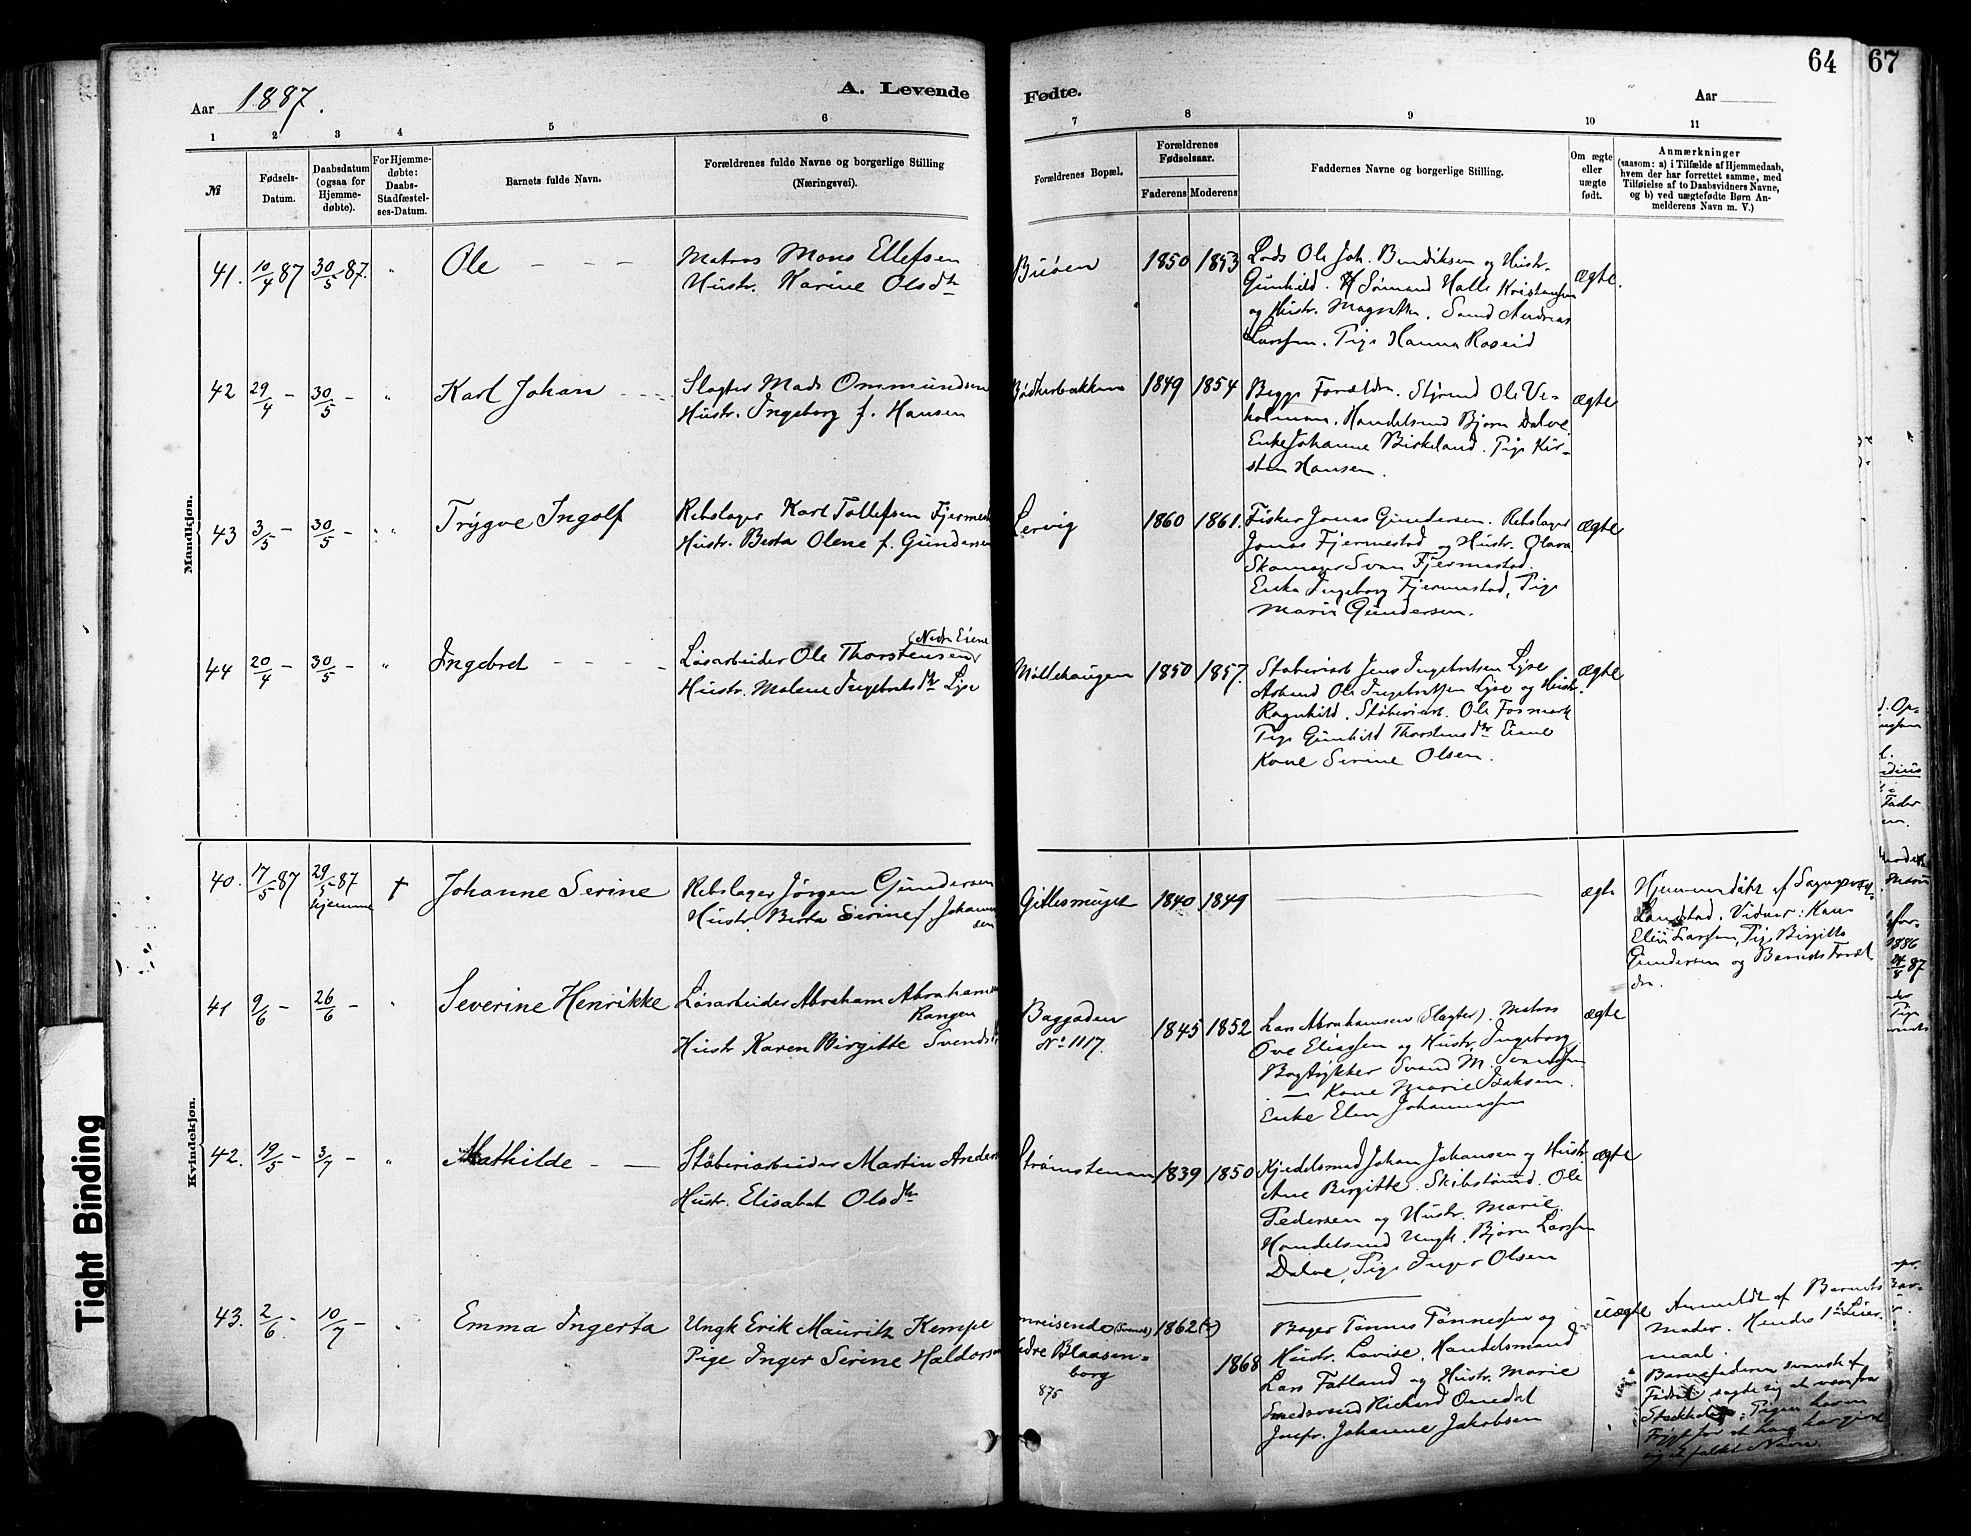 64 67
Aar 1887.
A. Levende Fødte.
Aar
1 2 3 4 5 6 7 8 9 10 11
№
Fødsels-Datum.
Daabsdatum (ogsaa for Hjemme-døbte).
For Hjemme-døbte: Daabs-Stadfæstel-ses-Datum.
Barnets fulde Navn.
Forældrenes fulde Navne og borgerlige Stilling (Næringsvei).
Forældrenes Bopæl.
Forældrenes Fødselsaar.
Faderens Moderens
Faddernes Navne og borgerlige Stilling.
Om ægte eller uægte født.
Anmærkninger
(saasom: a) i Tilfælde af Hjemmedaab,
hvem der har forrettet samme, med
Tilføielse af to Daabsvidners Navne,
og b) ved uægtefødte Børn An-
melderens Navn m. V.)
Mandkjøn.
41. 10/4 87 30/5 87. " Ole
Matros Mons Ellefsen
Hustr. Karine Olsdtr
Buøen 1850 1853
Lods Ole Joh. Bendiksen og Hustr.
Gunhild. Sømand Halle Kristensen
og Hustr. Magrethe. Sømd Andreas
Larssen. Pige Hanna Roseid
ægte.
42 29/4 - 30/5 - " Karl Johan
Slagter Mads Ommundsen
Hustr. Ingeborg f. Hansen
Bødkerbakken 1849 1854
Begge Forældre. Styrmd Ole Ve-
holmen. Handelsmd Bjørn Dalve
Enke Johanne Birkeland. Pige Kir-
sten Hansen.
ægte
43 3/5 - 30/5 - " Trygve Ingolf
Rebslager Karl Tollefsen Fjermest
Hustr. Berta Olene f. Gundersen
Lervig 1860 1861.
Fisker Jonas Gundersen. Rebslager
Jonas Fjermestad og Hustr. Olava
Skomager Sven Fjermestad.
Enke Ingeborg Fjermestad, Pige
Marie Gundersen.
ægte
44 20/4 - 30/5 - " Ingebret
(Nedre Eiene
Løsarbeider Ole Thorstensen
Hustr. Malene Ingebretsdtr Lyse
Møllehaugen 1850 1857.
Støberiarb. Jens Ingebretsen Lyse
Arbmd Ole Ingebretsen Lyse og Hustr.
Ragnhild. Støberiarb. Ole Fosmark
Pige Gunhild Thorstensdtr Eiene
Kone Serine Olsen.
ægte
Kvindekjøn.
40. 17/5 87 29/5 87 hjemme † Johanne Serine
Rebslager Jørgen Gundersen
Hustr. Berta Serine f. Johannes
sen
Gillesmuget 1840 1849
ægte
Hjemmedøbt af Sogneprest
Landstad. Vidner: Kone
Elen Larssen, Pige Birgitte
Gundersen og Barnets Foræl
dre.
41 9/6 - 26/6 - " Severine Henrikke
Løsarbeider Abraham Abrahamsen
Rangen
Hustr. Karen Birgitte Svendsd
Baggaden
No 1117.
1845 1852
Lars Abrahamsen (Slagter). Matros
Ove Eliassen og Hustr. Ingeborg
Bogtrykker Svend M. Svendsen
— Kone Marie Isaksen.
Enke Elen Johannessen
ægte
42. 19/5 - 3/7 - " Mathilde
Støberiarbeider Martin Anders
Hustr. Elisabet Olsdtr
Strømstenen 1839 1850
Kjedelsmed Johan Johansen og Hustr
Ane Birgitte. Skibstømmd. Ole
Pedersen og Hustr. Marie.
Handelsmd Ungk. Bjørn Larssen
Dalve, Pige Inger Olsen
ægte
43. 2/6 - 10/7 - " Emma Ingerta
Ungk Erik Mauritz Kempe
Pige Inger Serine Haldorsen
omreisende (Svensk)
Nedre Blaasen-
borg
875
1862 (?)
1868
Bager Tønnes Tønnessen og
Hustr. Lovise. Handelsmand
Lars Fatland og Hustr. Marie
Smedsvend Richard Omedal
Jomfr. Johanne Jakobsen
uægte
Anmeldt af Barnets
moder. Hendes 1ste Leier
maal.
Barnefaderen svensk af
Fødsel sagde sig at være fra
Stockholm; Pigen havde
Frygt for at han har givet
sig et falskt Navn.
Tight Binding